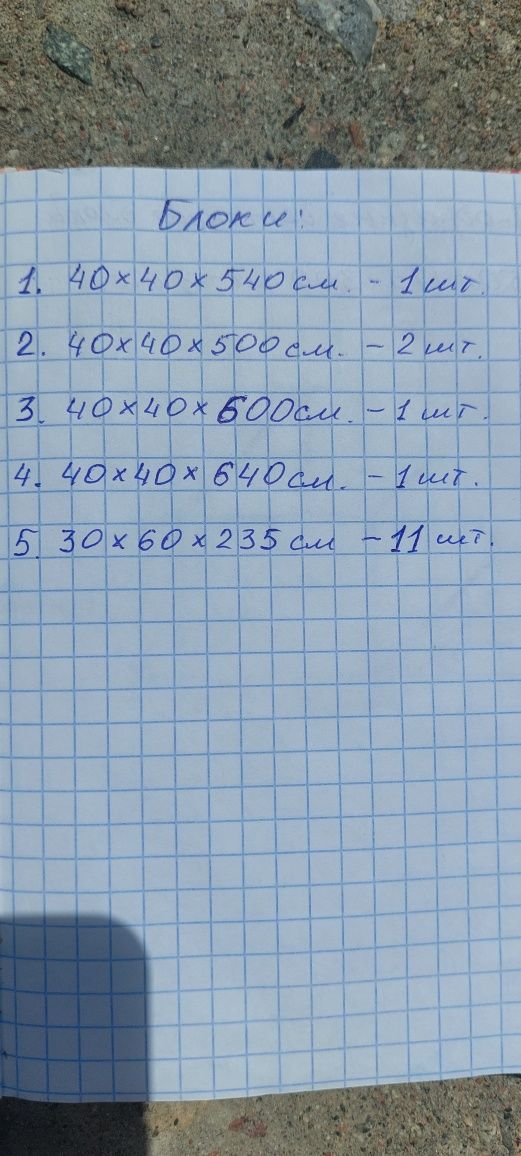 Блоки:
1. 40×40×540 см. - 1 шт.
2. 40×40×500 см. - 2 шт.
3. 40×40×600 см. - 1 шт.
4. 40×40×640 см. - 1 шт.
5. 30×60×235 см - 11 шт.